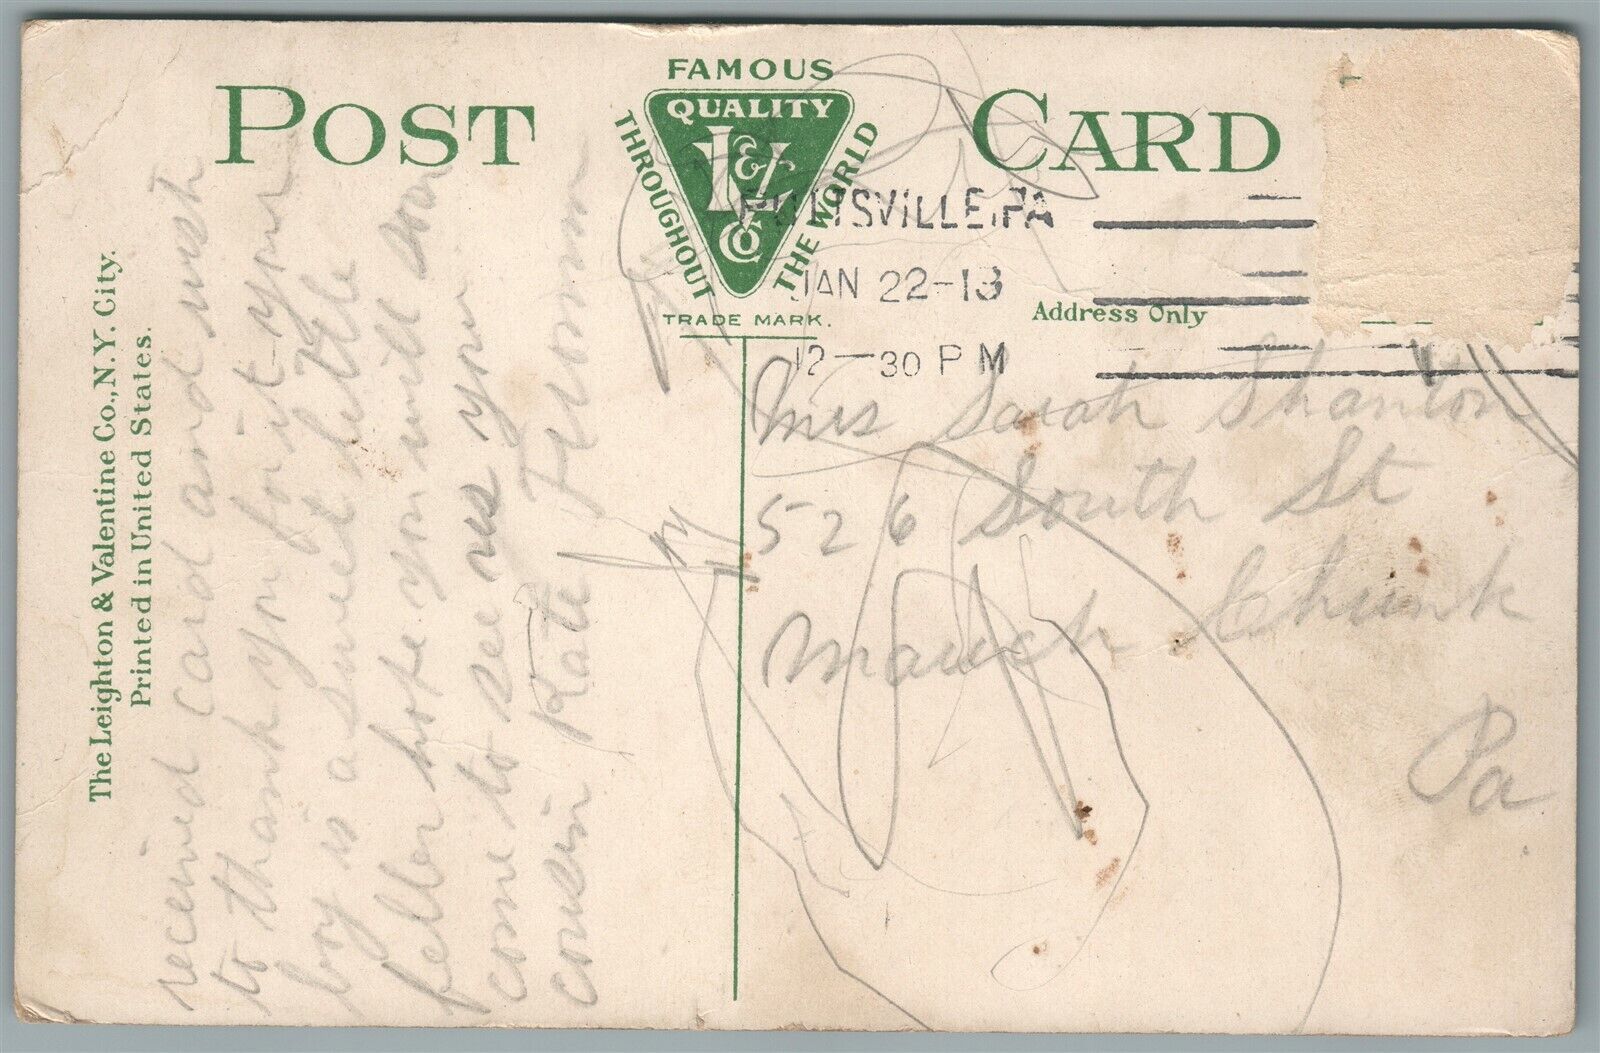 POST CARD
FAMOUS
QUALITY
THROUGHOUT
THE WORLD
LV & Co
TRADE MARK.
POTTSVILLE, PA
JAN 22-13
12-30 PM
Address Only
The Leighton & Valentine Co., N.Y. City.
Printed in United States.
received card and wish
to thank you for it your
boy is a sweet little
feller hope you will soon
come to see us your
cousin Kate
Mrs Sarah Shanton
526 South St
Mauch Chunk
Pa